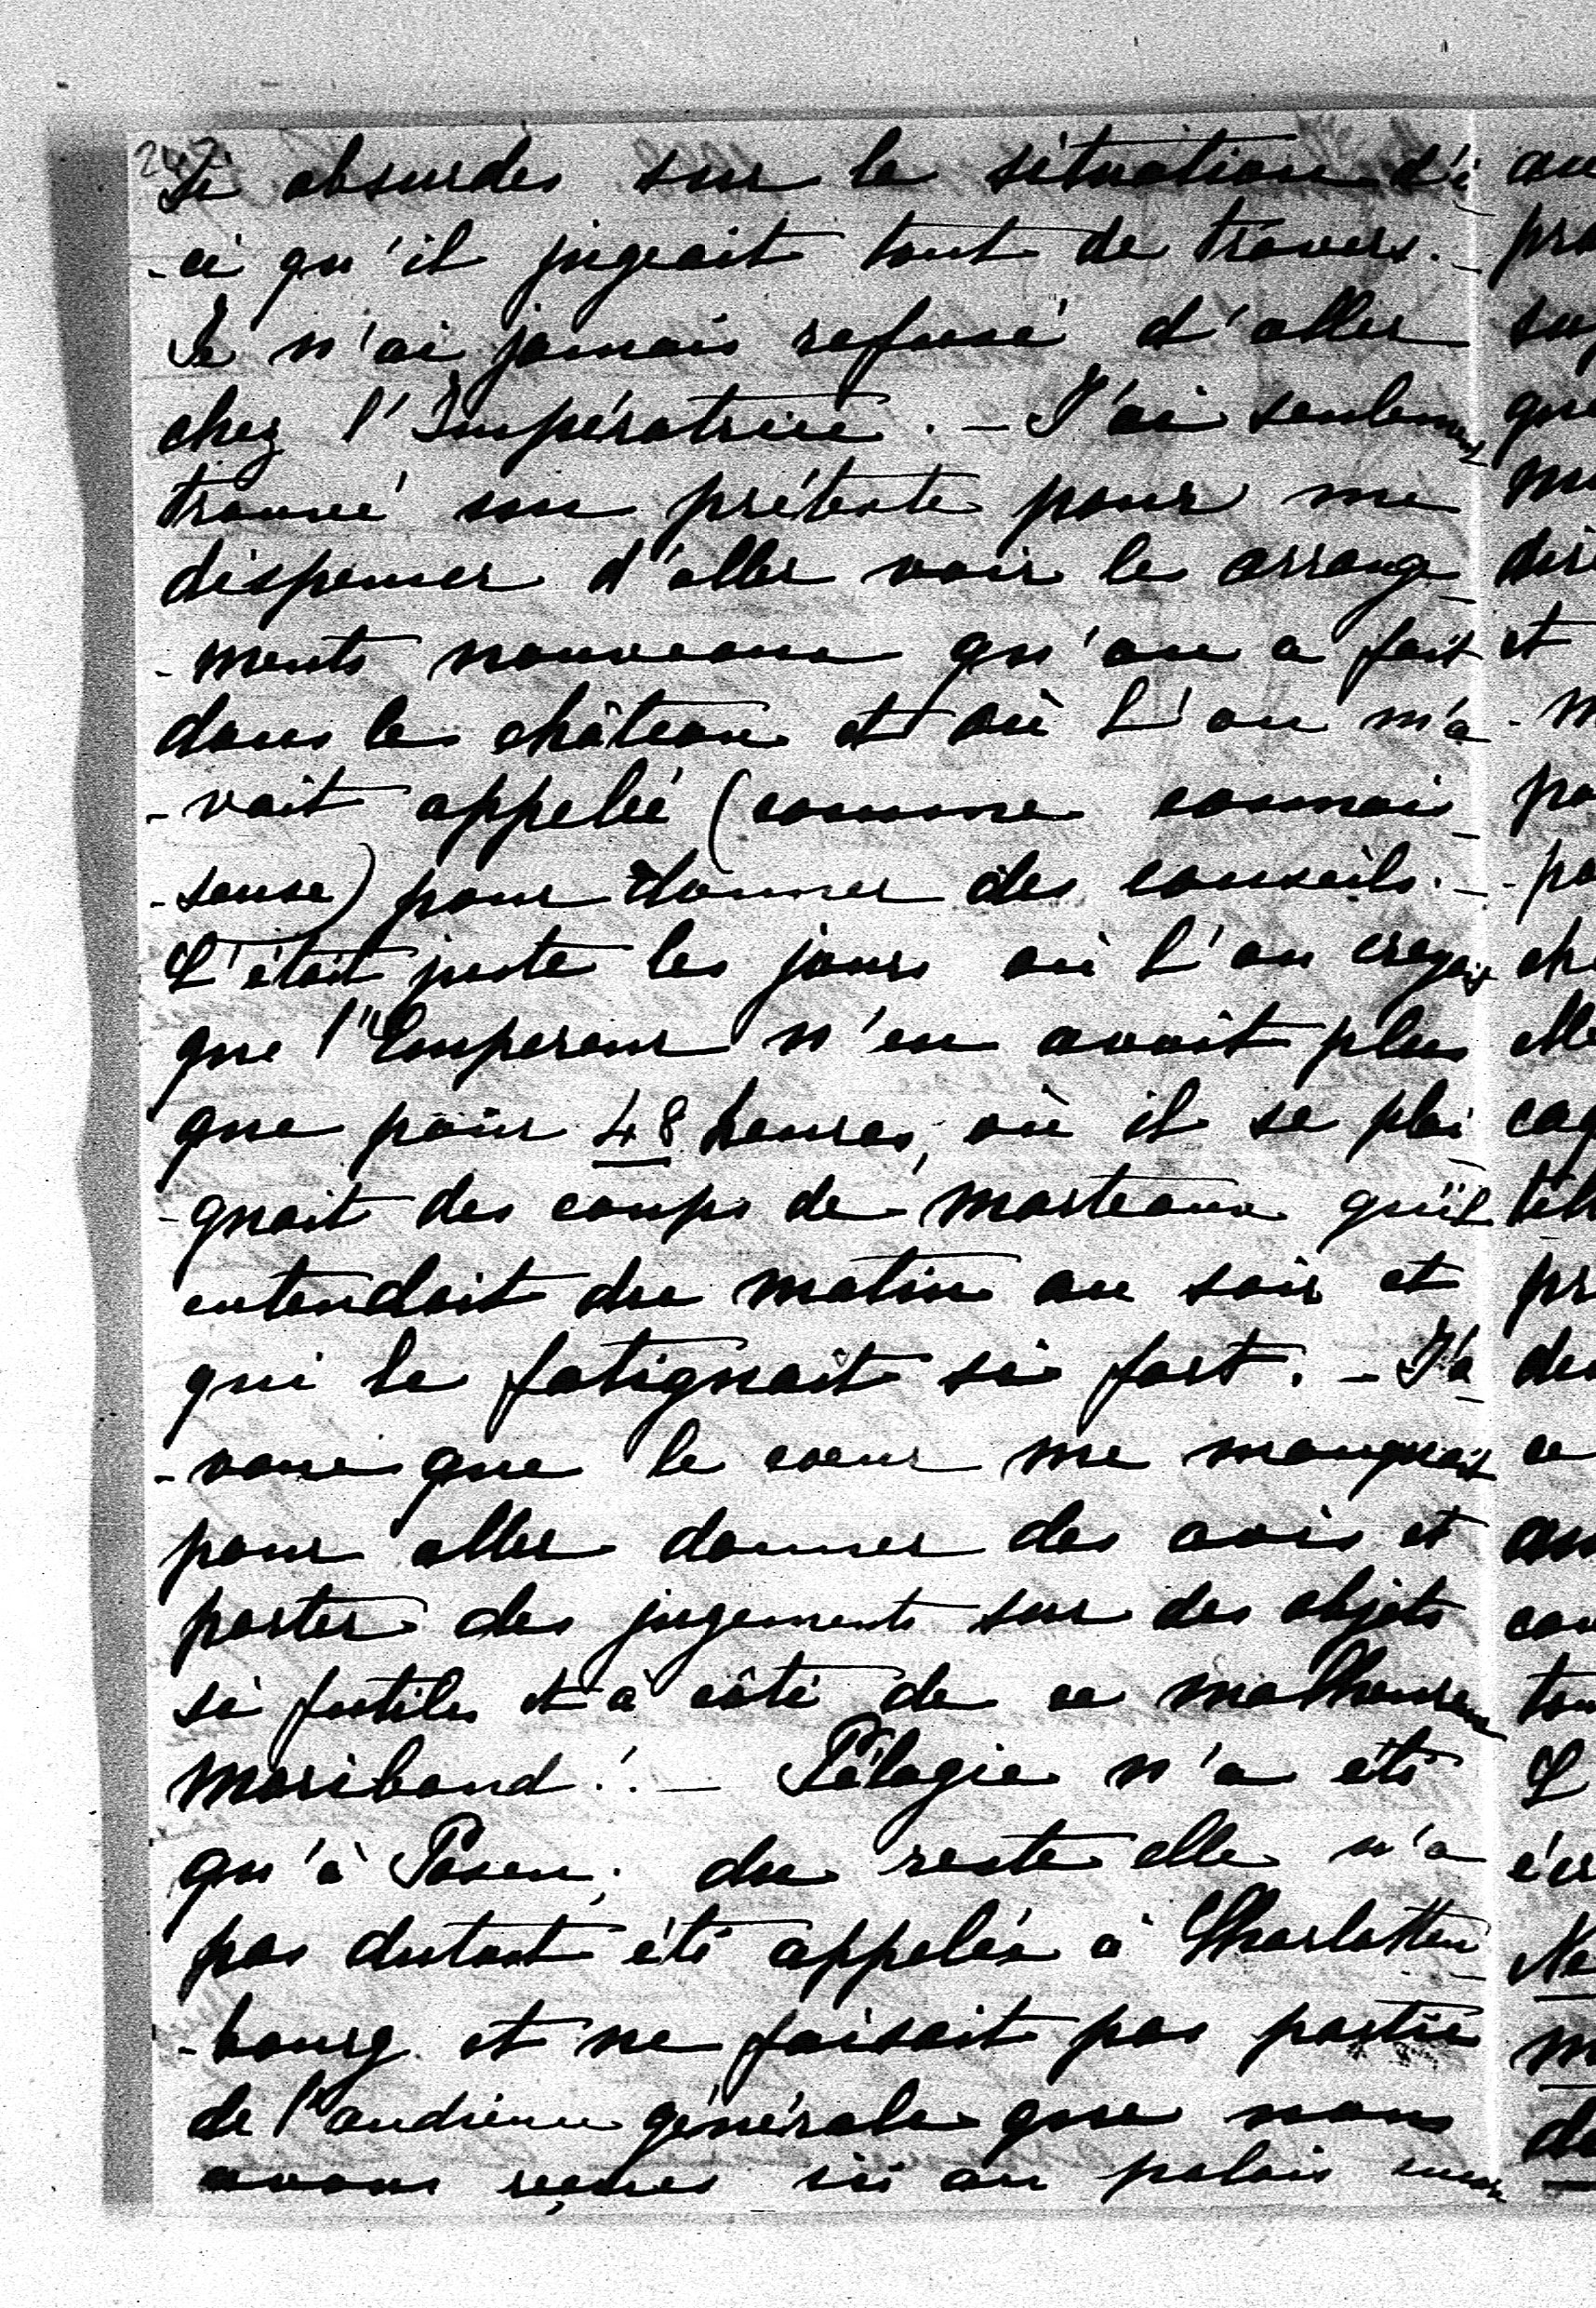 242
si absurdes sur la situation d'i
-ci qu'il jugeait tout de travers. -
Je n'ai jamais refusé d'aller
chez l'Impératrice. - J'ai seulement
trouvé un prétexte pour me
dispenser d'aller voir les arrange-
-ments nouveaux qu'on a fait
dans le château et où l'on m'a-
-vait appelée (comme connais-
-seuse) pour donner des conseils. -
C'était juste les jours où l'on croyait
que l'Empereur n'en avait plus
que pour 48 heures, où il se plai-
-gnait des coups de marteaux qu'il
entendait du matin au soir et
qui le fatignait si fort. - J'a-
-voue que le coeur me manquait
pour aller donner des avis et
porter des jugements sur des objets
si futiles et à côté de ce malheureux
moribond! - Pélagie n'a été
qu'à Posen; du reste elle n'a
pas dutout été appelée à Charlotten-
-bourg et ne faisait pas partie
de l'audience générale que nous
avons reçues ici au palais